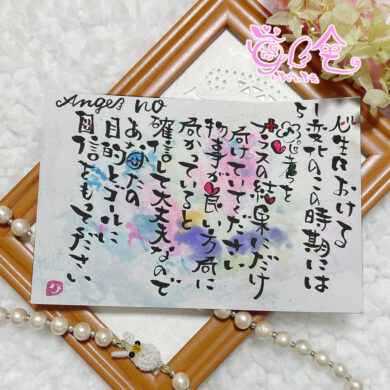 Angel no
人生における
変化のこの時期には
思考を
プラスの結果にだけ
向けていてください
物事が良い方向に
向かっていると
確信して大丈夫なので
あなたの
目的とゴールに
自信をもってください